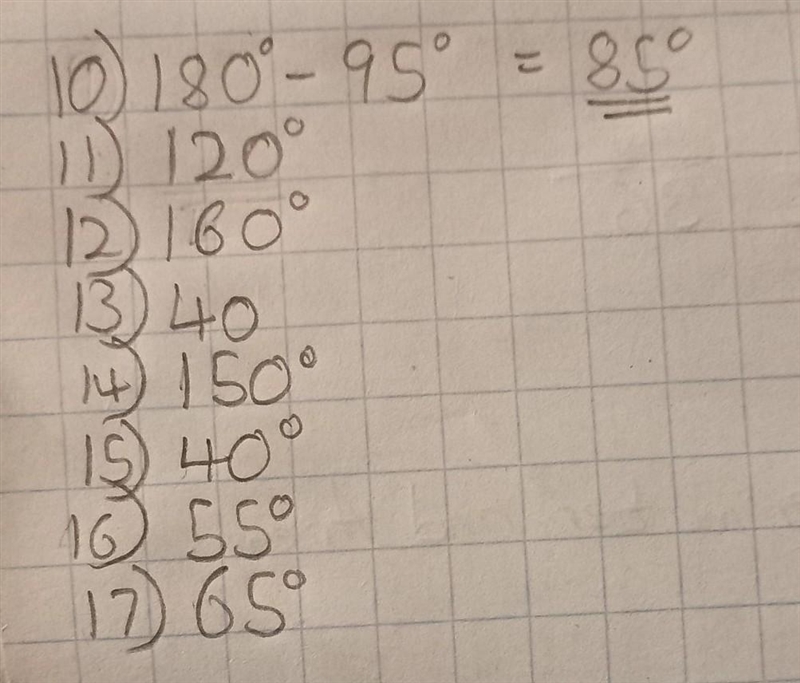 10) 180° - 95° = 85°
11) 120°
12) 160°
13) 40
14) 150°
15) 40°
16) 55°
17) 65°